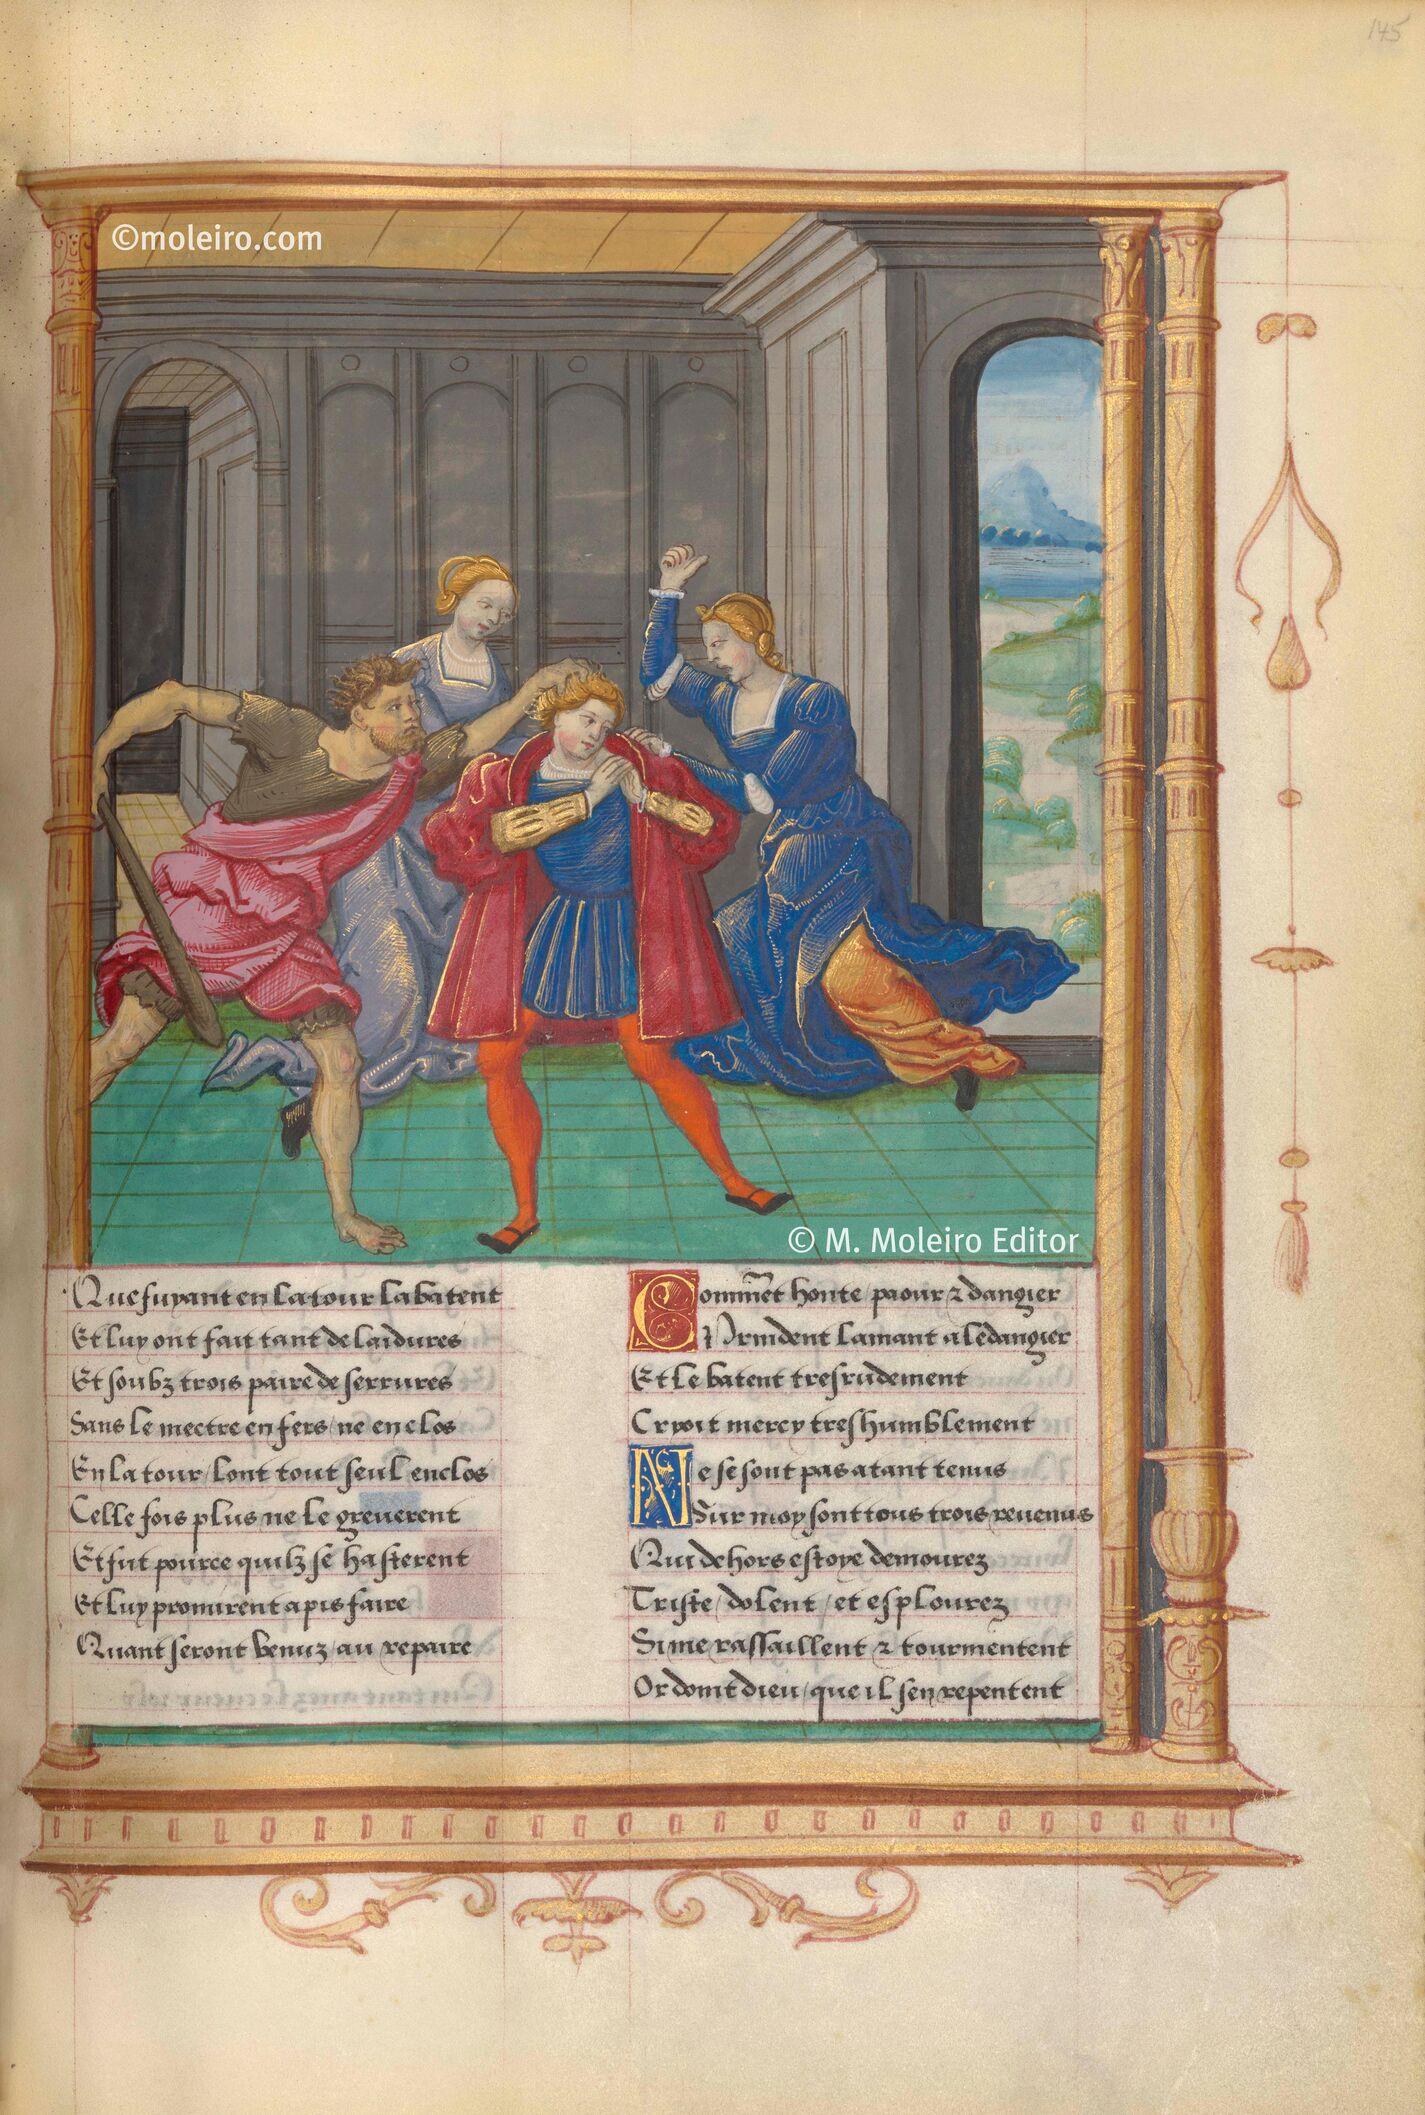 145
©moleiro.com
© M. Moleiro Editor
Que fuyant en la tour la batent
Et luy ont fait tant de laidures
Et soubz trois paire de serrures
Sans le mectre en fers / ne en clos
En la tour / lont tout seul enclos
Celle fois plus ne le greuerent
Et fut pource quilz se hasterent
Et luy promirent apis faire
Quant seront venuz / au repaire
Comment honte / paour ⁊ dangier
Prindent lamant a ledangier
Et le batent tresrudement
Cryoit mercy treshumblement
Ne se sont pas atant tenus
Sur moy sont tous trois reuenus
Qui dehors estoye demourez
Triste / dolent / et esplourez
Si me rassaillent ⁊ tourmentent
Or doint dieu / que il sen repentent